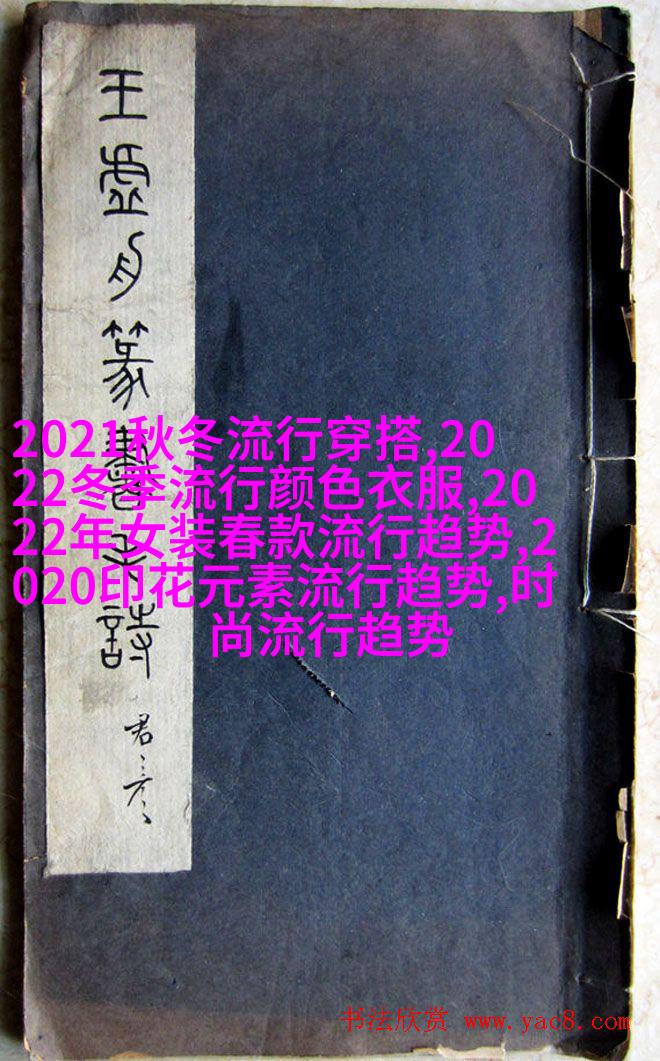 王虛舟篆書詩
君
2021秋冬流行穿搭,20
22冬季流行颜色衣服,20
22年女装春款流行趋势,2
020印花元素流行趋势,时
尚流行趋势
书法欣赏 www.yac8.com